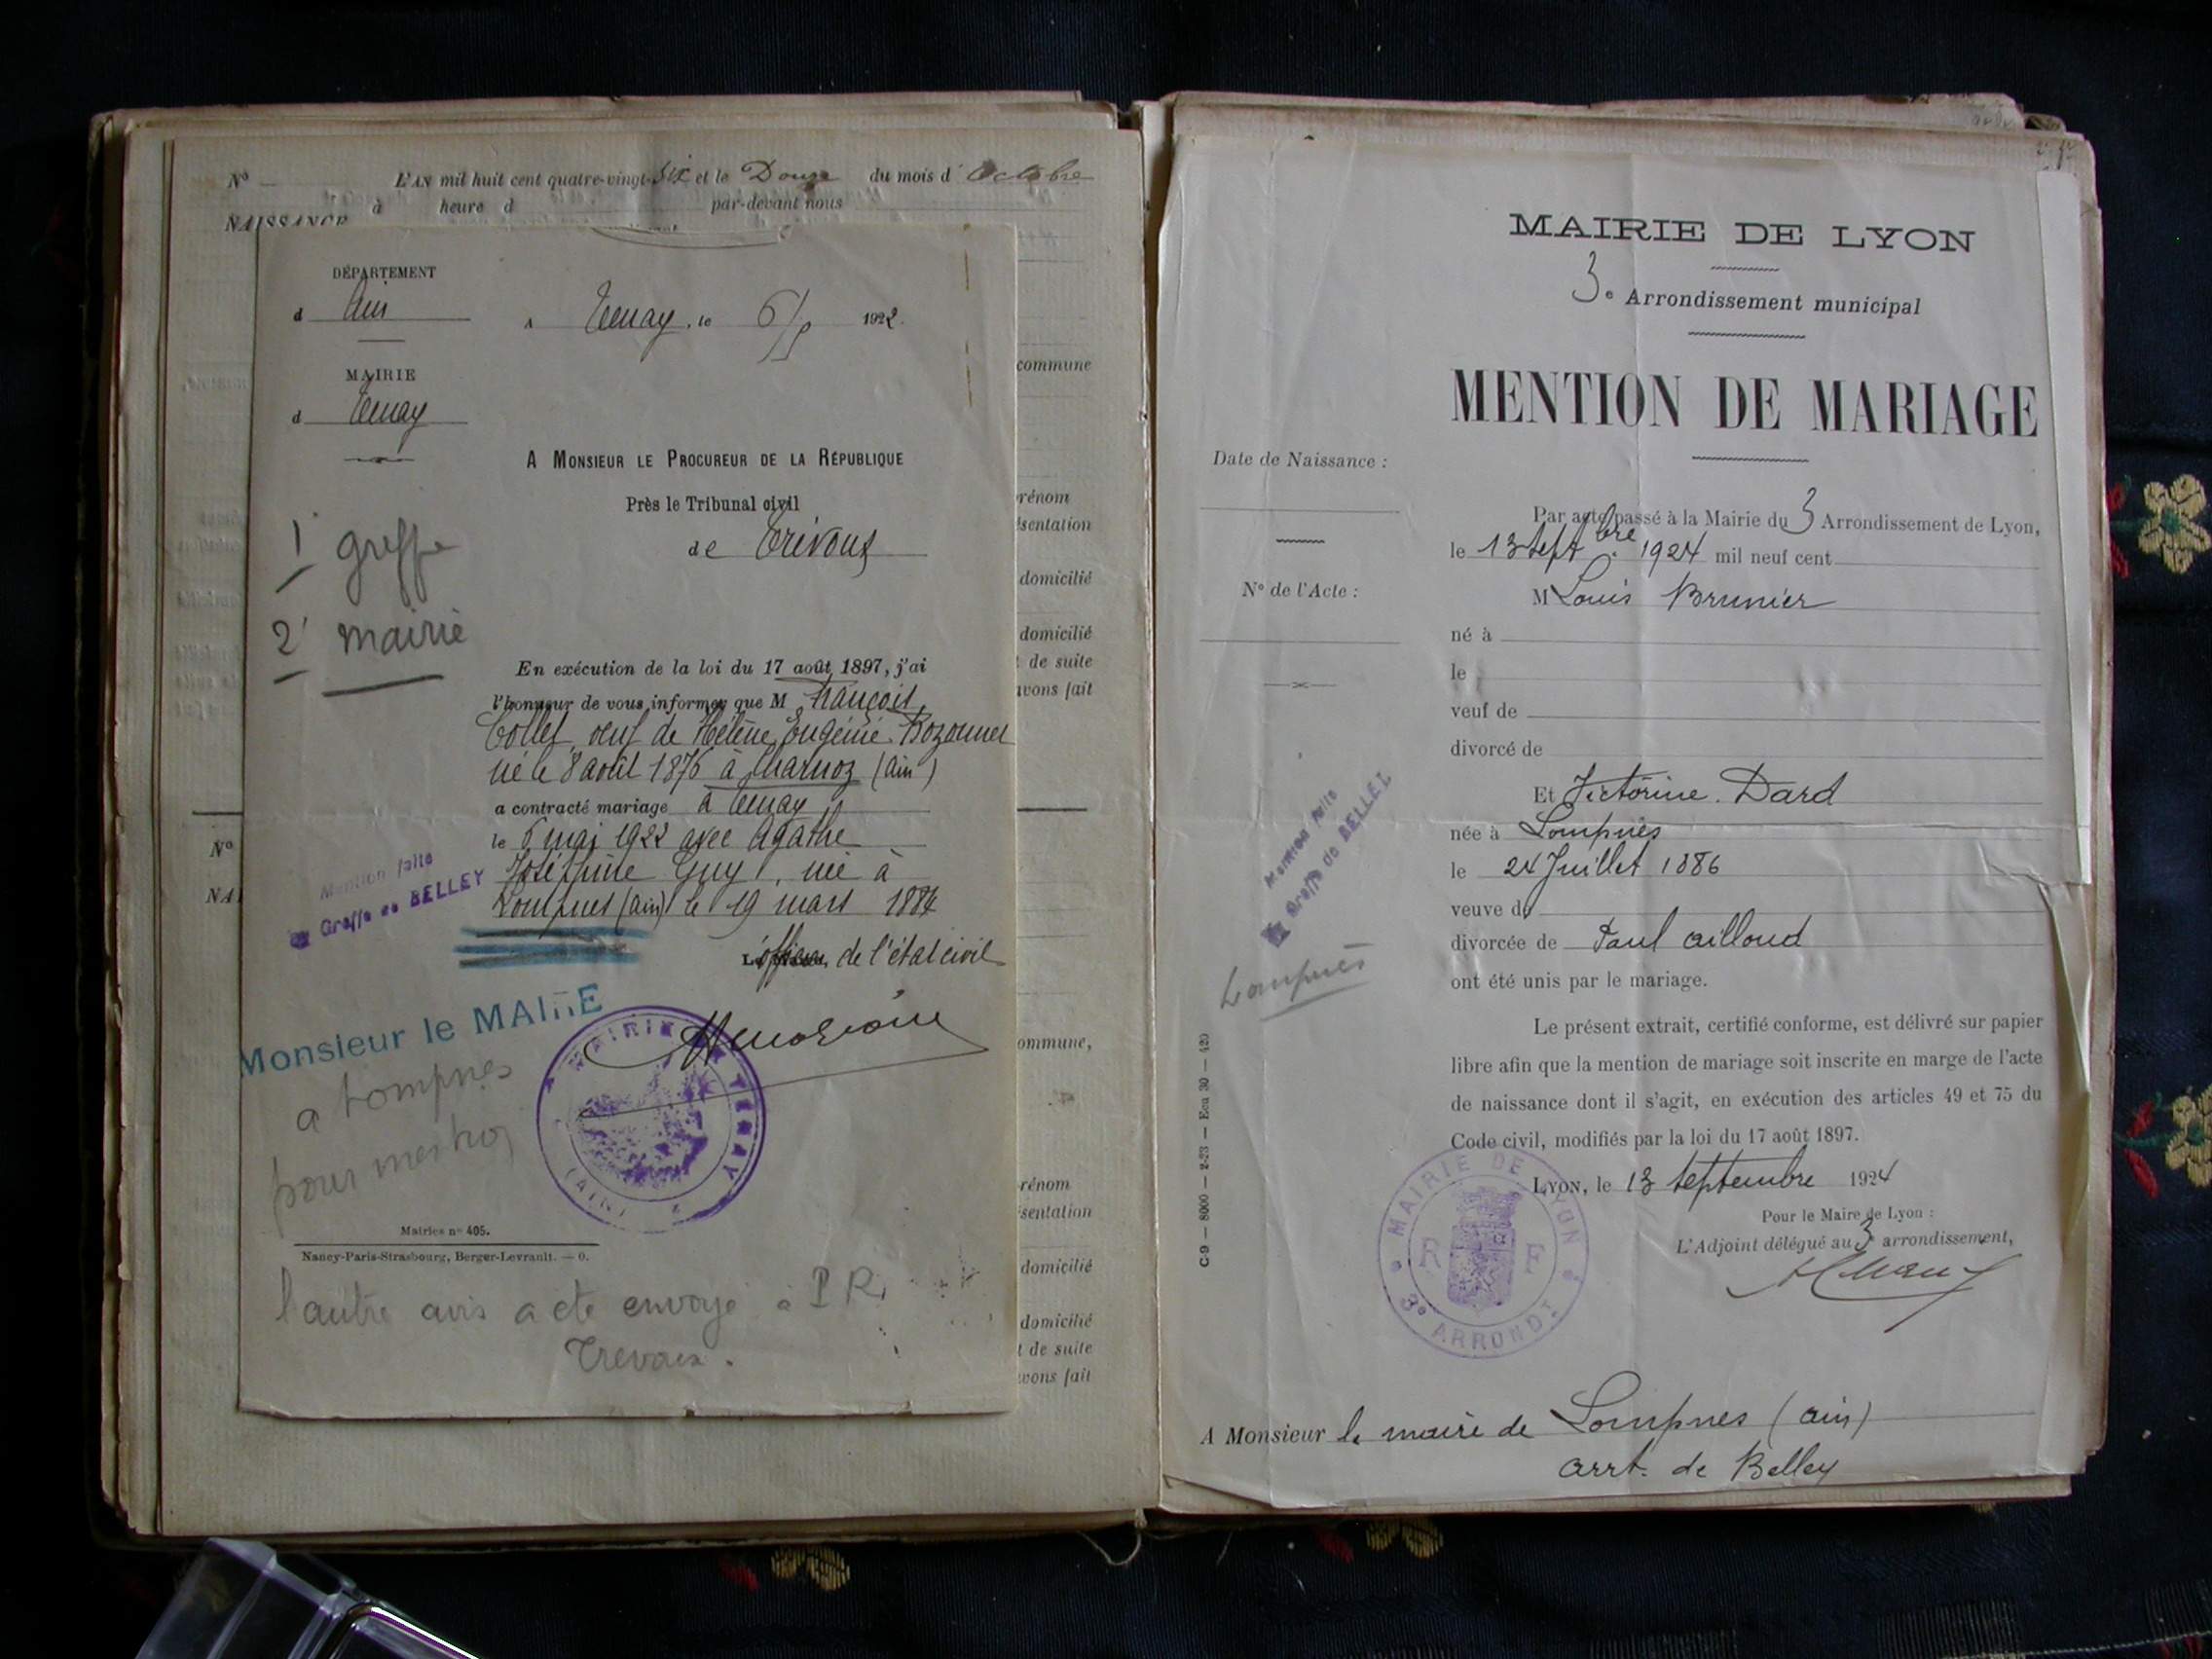 N° L'AN mil huit cent quatre-vingt-six et le Douze du mois d'Octobre
à heure d par-devant nous
NAISSANCE
DÉPARTEMENT
d Ain
A Tenay, le 6/5 1922.
MAIRIE
d Tenay
A MONSIEUR LE PROCUREUR DE LA RÉPUBLIQUE
Près le Tribunal civil
de Trévoux
1° greffe
2° mairie
En exécution de la loi du 17 août 1897, j'ai
l'honneur de vous informer que M François
Collet, veuf de Hélène Eugénie Bozonnet
né le 8 août 1876 à Charnoz (ain)
a contracté mariage à Tenay
le 6 mai 1922 avec Agathe
Joséphine Guy, née à
Lompnes (ain) le 19 mars 1886
Mention faite
au Greffe de BELLEY
Le officier de l'état civil
Monsieur le MAIRE
a Lompnes
pour mention
MAIRIE DE TENAY
(AIN)
Mairies n° 405.
Nancy-Paris-Strasbourg, Berger-Levrault. — O.
l'autre avis a ete envoye a P R.
Trevoux.
commune
rénom
sentation
domicilié
domicilié
t de suite
avons fait
N°
NAI
ommune,
rénom
sentation
domicilié
domicilié
t de suite
avons fait
MAIRIE DE LYON
3e Arrondissement municipal
MENTION DE MARIAGE
Date de Naissance :
N° de l'Acte :
Par acte passé à la Mairie du 3 Arrondissement de Lyon,
le 13 Septbre 1924 mil neuf cent
M Louis Brunier
né à
le
veuf de
divorcé de
Et Victorine Dard
née à Lompnes
le 24 Juillet 1886
veuve de
divorcée de Paul Ailloud
ont été unis par le mariage.
Mention faite
au Greffe de BELLEY
Lompnes
Le présent extrait, certifié conforme, est délivré sur papier
libre afin que la mention de mariage soit inscrite en marge de l'acte
de naissance dont il s'agit, en exécution des articles 49 et 75 du
Code civil, modifiés par la loi du 17 août 1897.
LYON, le 13 Septembre 1924
Pour le Maire de Lyon :
L'Adjoint délégué au 3e arrondissement,
MAIRIE DE LYON
R F
3e ARRONDT
C-9 — 8000 — 2-23 — Ecu 30 — 420
A Monsieur le maire de Lompnes (ain)
arrt. de Belley